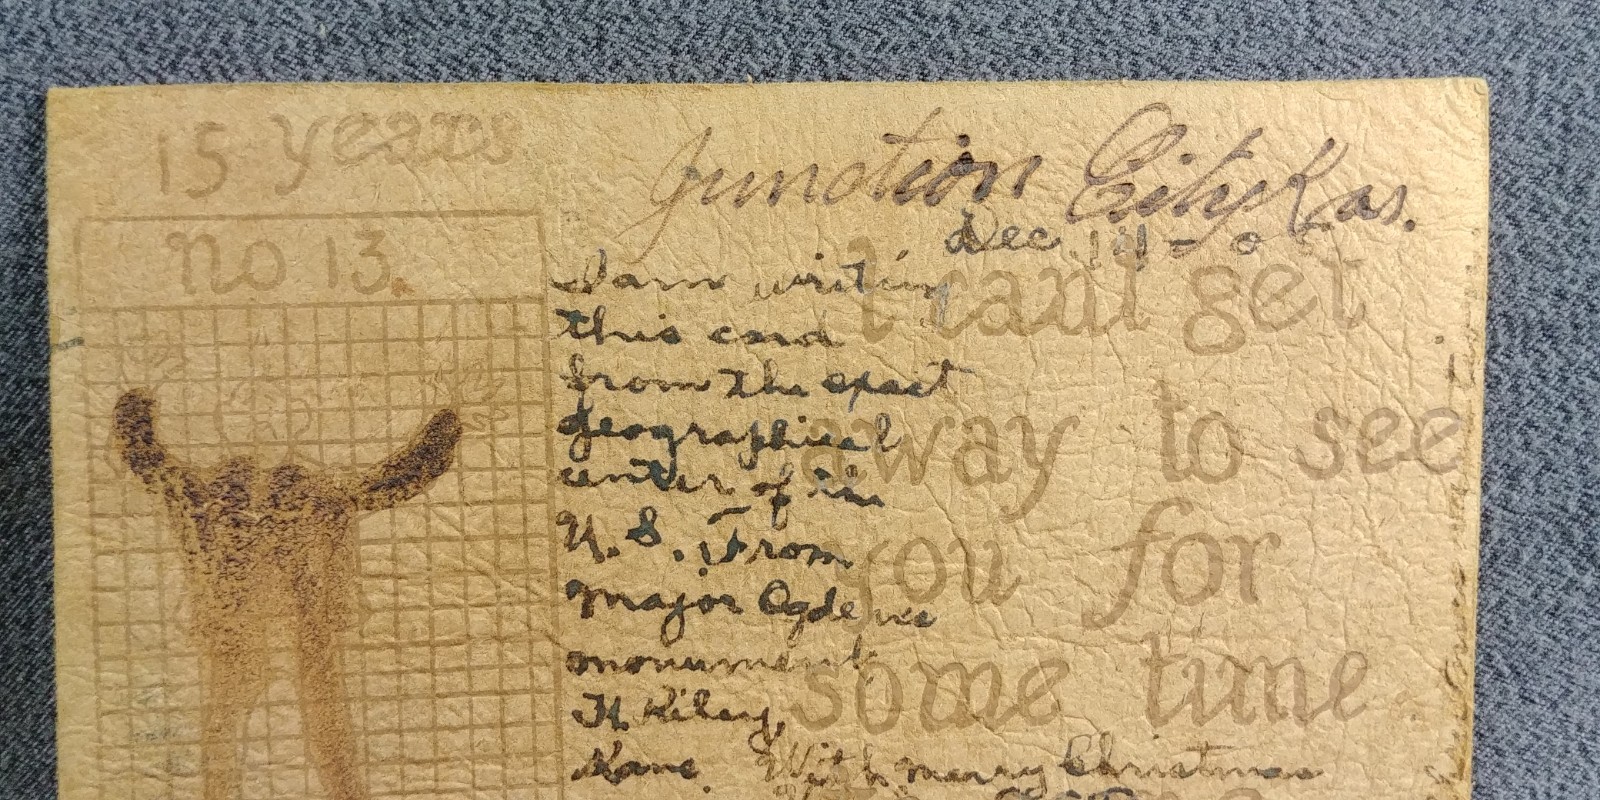 15 years
no 13.
Junction City Kas.
Dec
I cant get
away to see
you for
some time
I am writing
this card
from the exact
geographical
center of the
U. S. From
Major Ogden's
monument
Ft Riley,
Kans. With merry Christmas